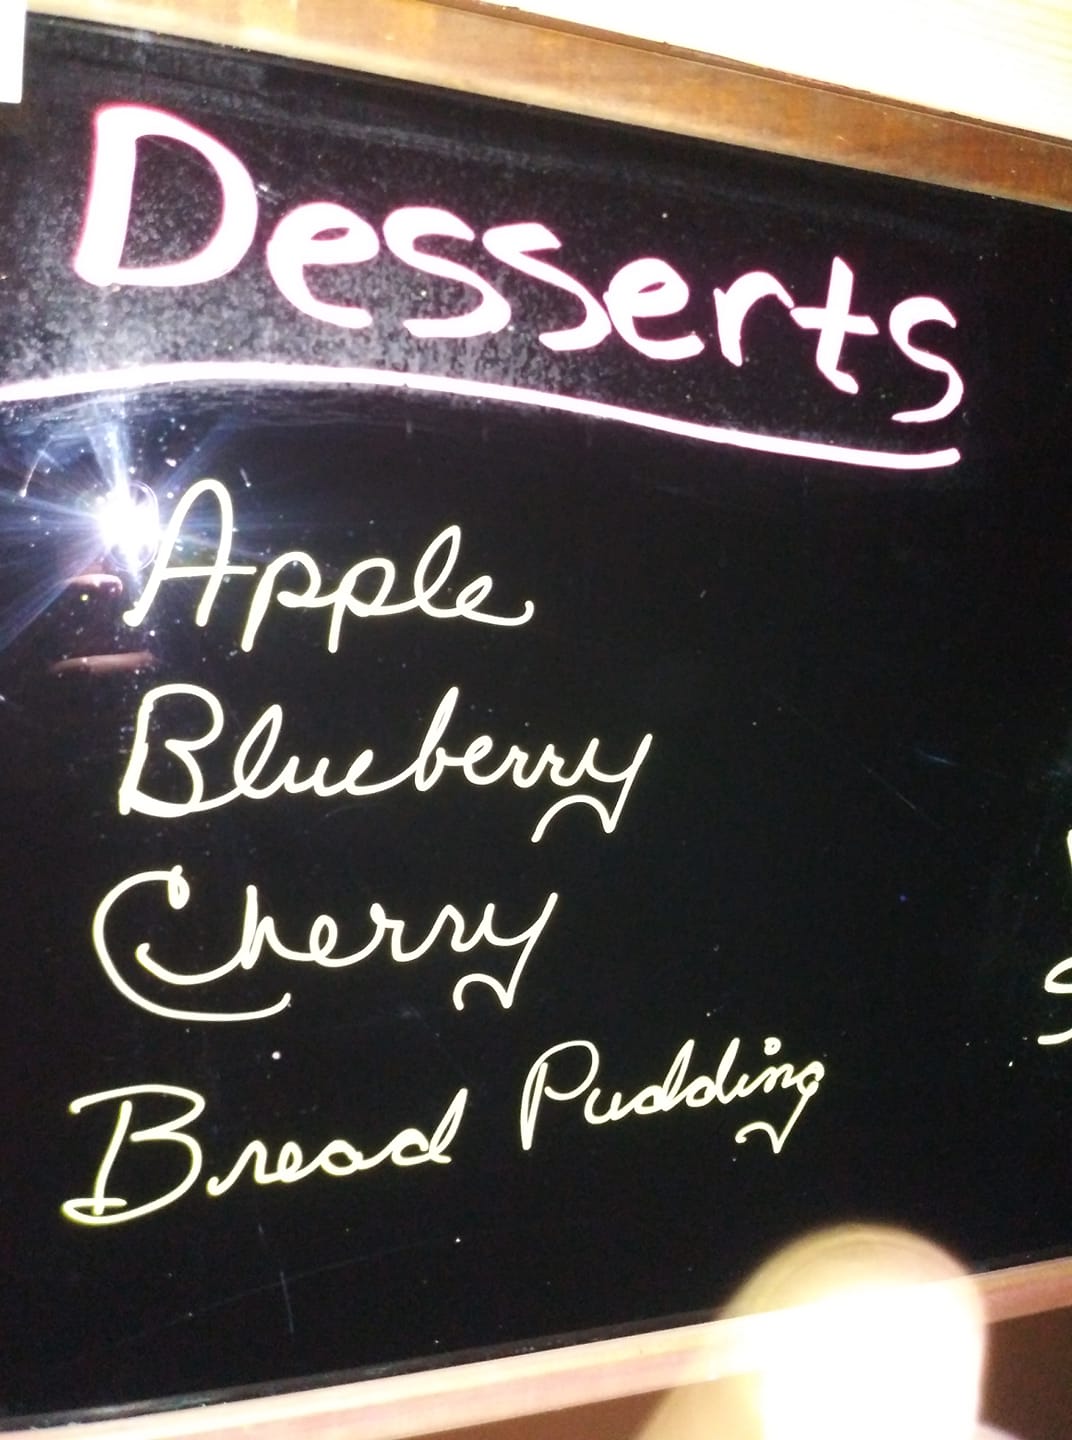 Desserts
Apple
Blueberry
Cherry
Bread Pudding